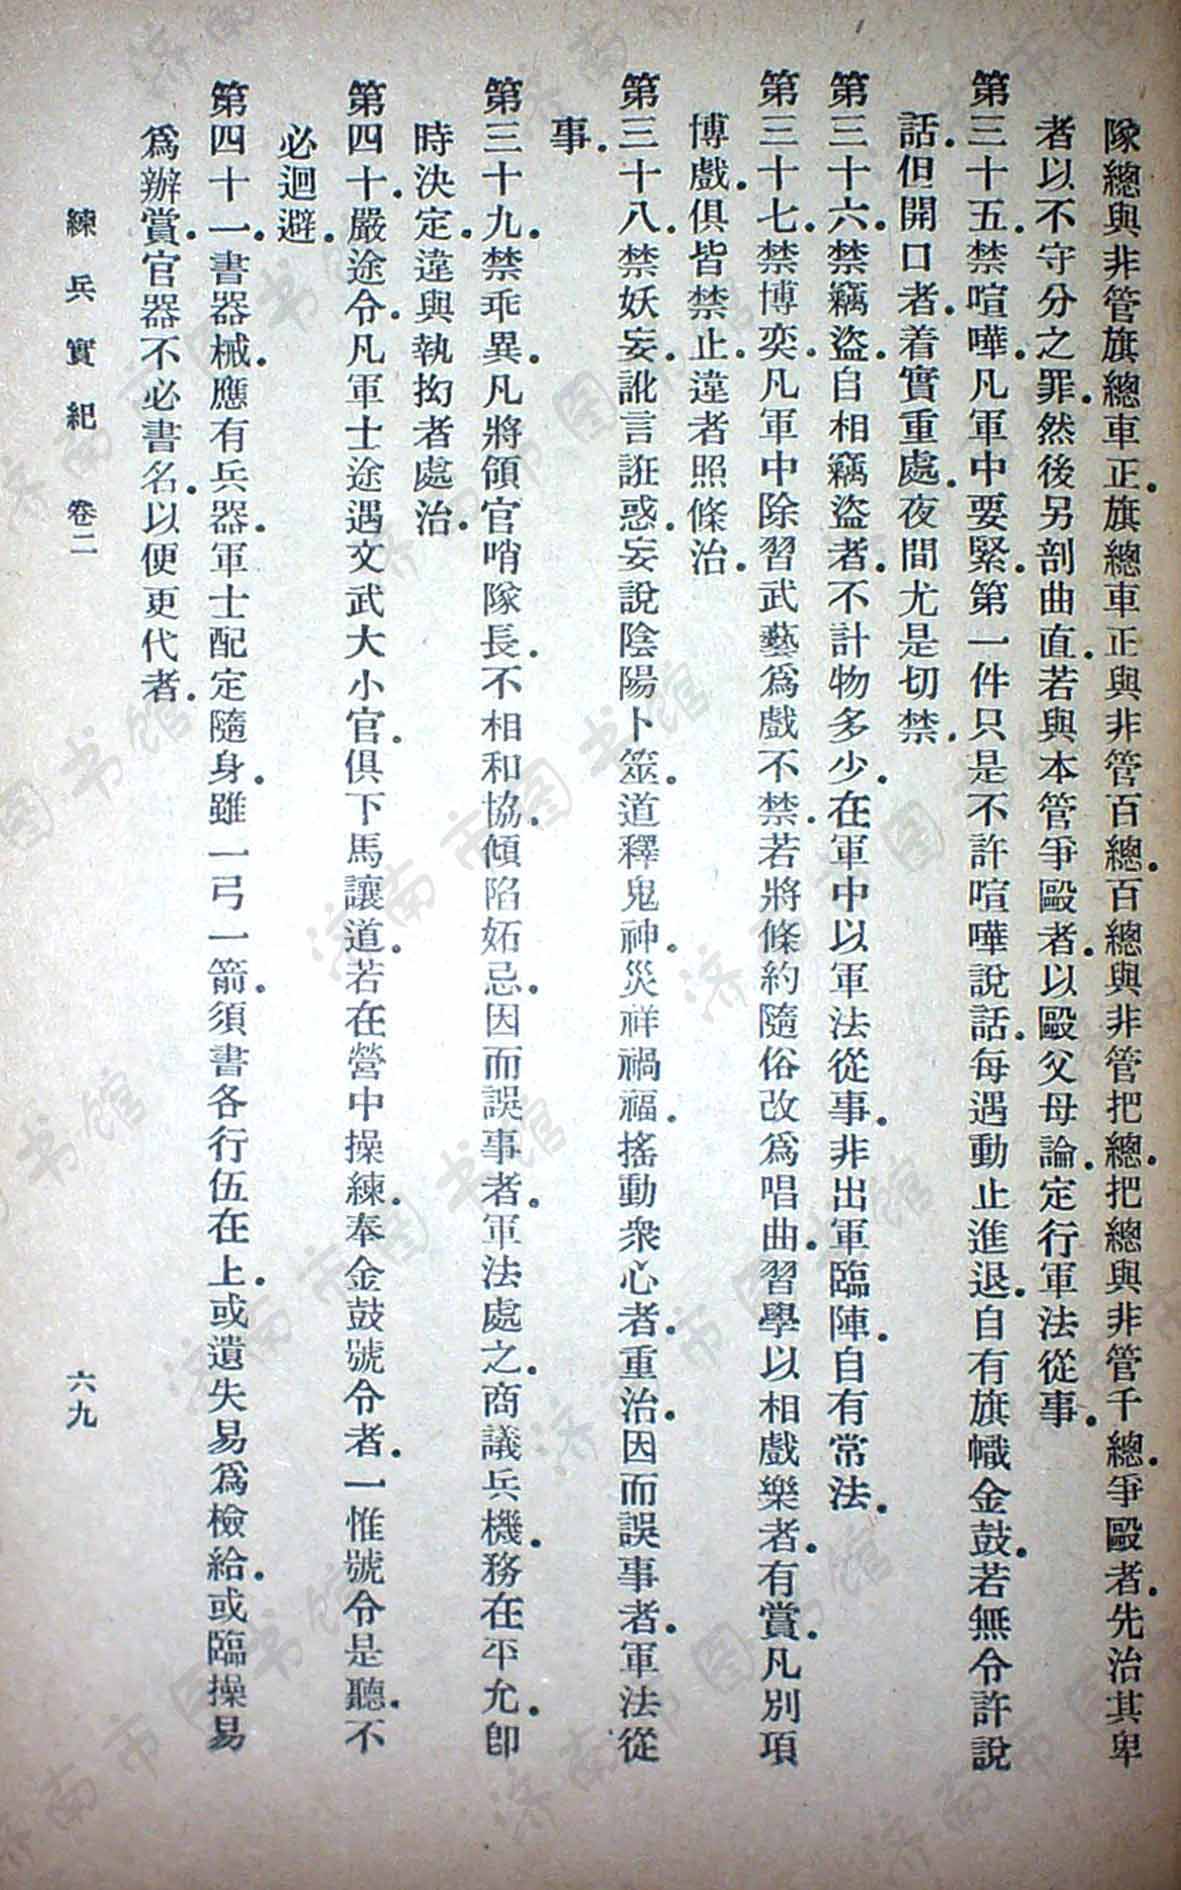 隊總與非管旗總車正.旗總車正與非管百總.百總與非管把總.把總與非管千總.爭毆者.先治其卑
者以不守分之罪.然後另剖曲直.若與本管爭毆者.以毆父母論.定行軍法從事.
第三十五.禁喧嘩.凡軍中要緊.第一件只是不許喧嘩說話.每遇動止進退.自有旗幟金鼓.若無令許說
話.但開口者.着實重處.夜間尤是切禁.
第三十六.禁竊盜.自相竊盜者.不計物多少.在軍中以軍法從事.非出軍臨陣.自有常法.
第三十七.禁博奕.凡軍中除習武藝爲戲不禁.若將條約隨俗改爲唱曲.習學以相戲樂者.有賞.凡別項
博戲.俱皆禁止.違者照條治.
第三十八.禁妖妄.訛言誑惑.妄說陰陽卜筮.道釋鬼神.災祥禍福.搖動衆心者.重治.因而誤事者.軍法從
事.
第三十九.禁乖異.凡將領官哨隊長.不相和協.傾陷妬忌.因而誤事者.軍法處之.商議兵機.務在平允.卽
時決定.違與執拗者處治.
第四十.嚴途令.凡軍士途遇文武大小官.俱下馬讓道.若在營中操練.奉金鼓號令者.一惟號令是聽.不
必迴避.
第四十一.書器械.應有兵器.軍士配定隨身.雖一弓一箭.須書各行伍在上.或遺失易爲檢給.或臨操易
爲辦賞.官器不必書名.以便更代者.
練兵實紀 卷二
六九
济南市图书馆